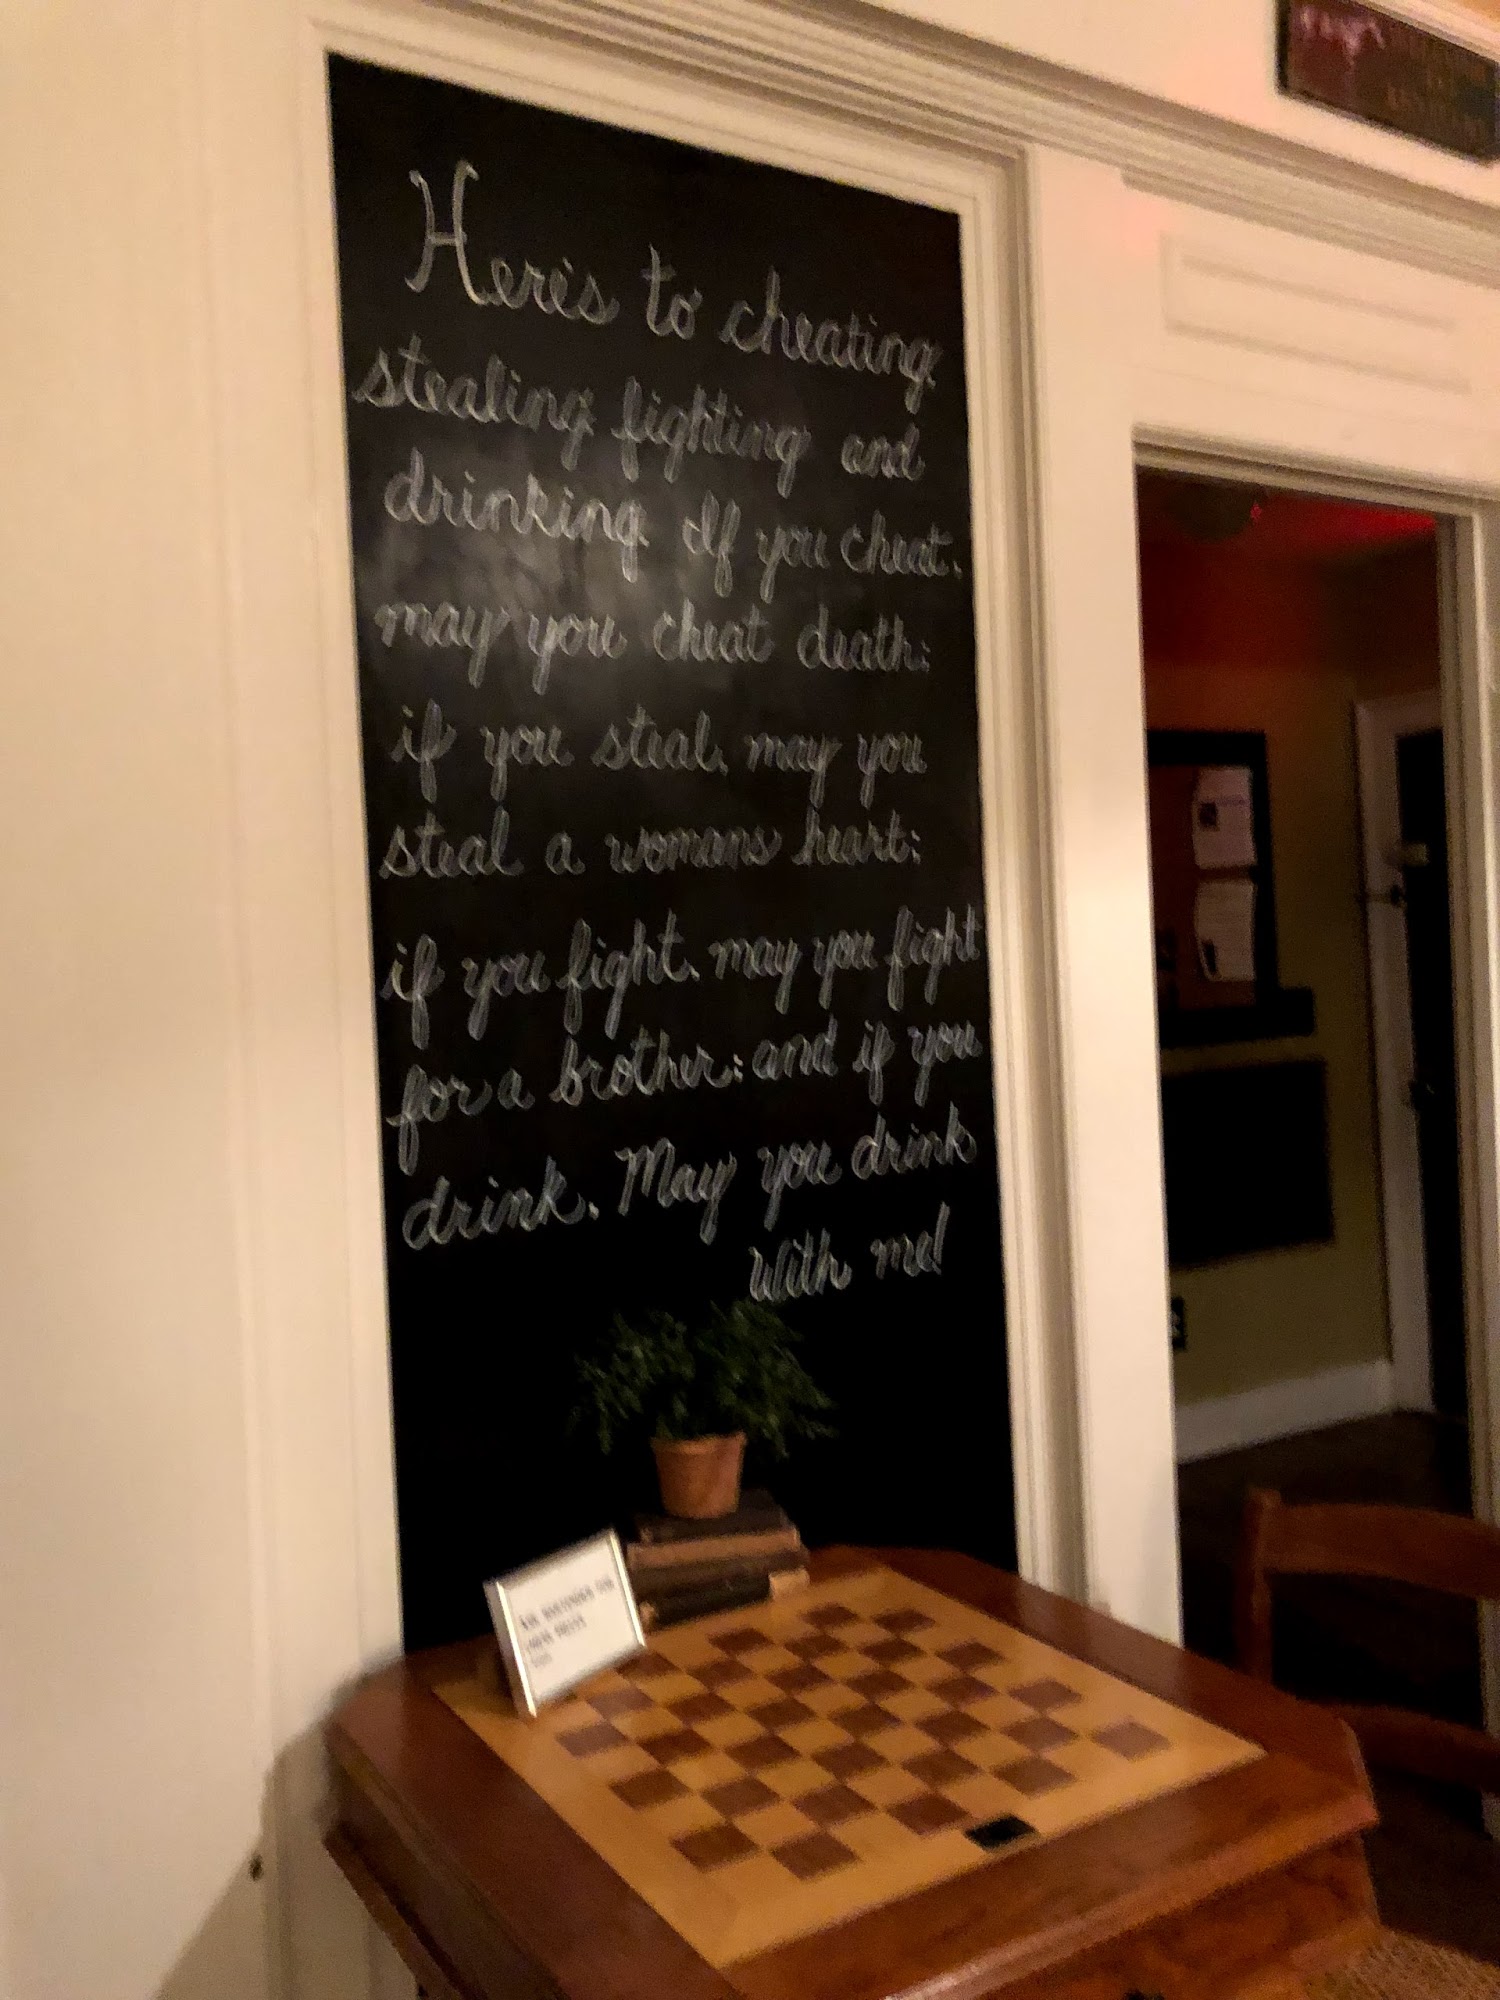 Here's to cheating,
stealing, fighting and
drinking. If you cheat,
may you cheat death;
if you steal, may you
steal a womans heart;
if you fight, may you fight
for a brother; and if you
drink, May you drink
With me!
ASK BARTENDER FOR